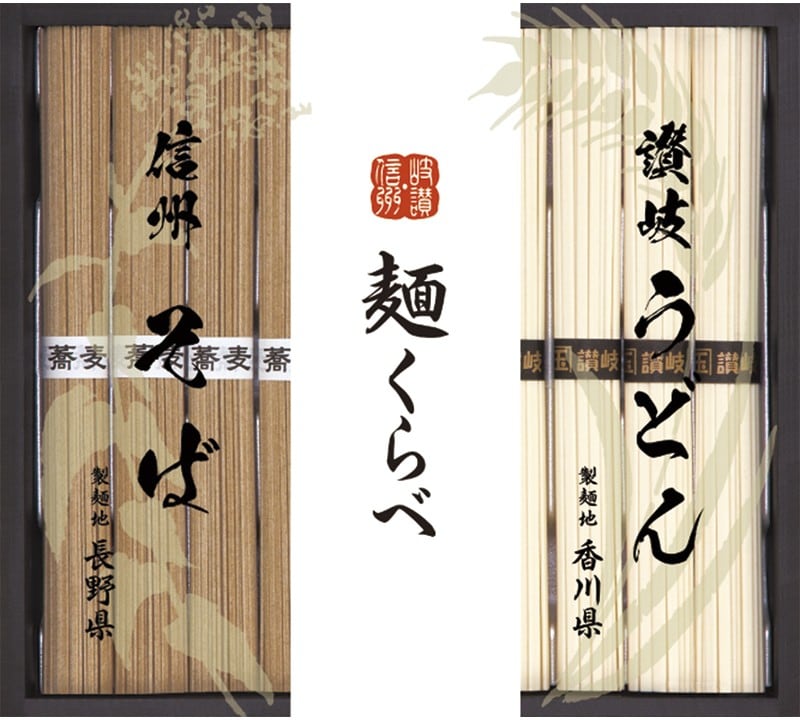 讃岐うどん
製麺地 香川県
岐讃
信州
麺くらべ
信州そば
製麺地 長野県
蕎麦 蕎麦 蕎麦 蕎
岐 国讃岐 国讃岐 国讃岐